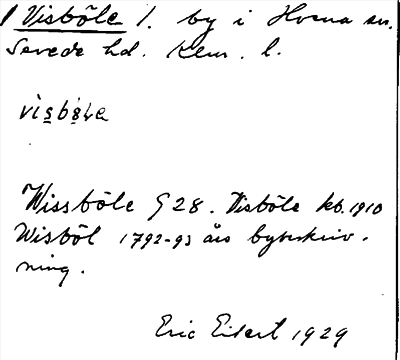 Visböle l. by i Hvena sn.
Sevede hd. Kalm. l.
Wissböle G 28. Visböle kb. 1910
Wisböl 1792-93 års byteskriv-
ning.
Eric Eilert 1929